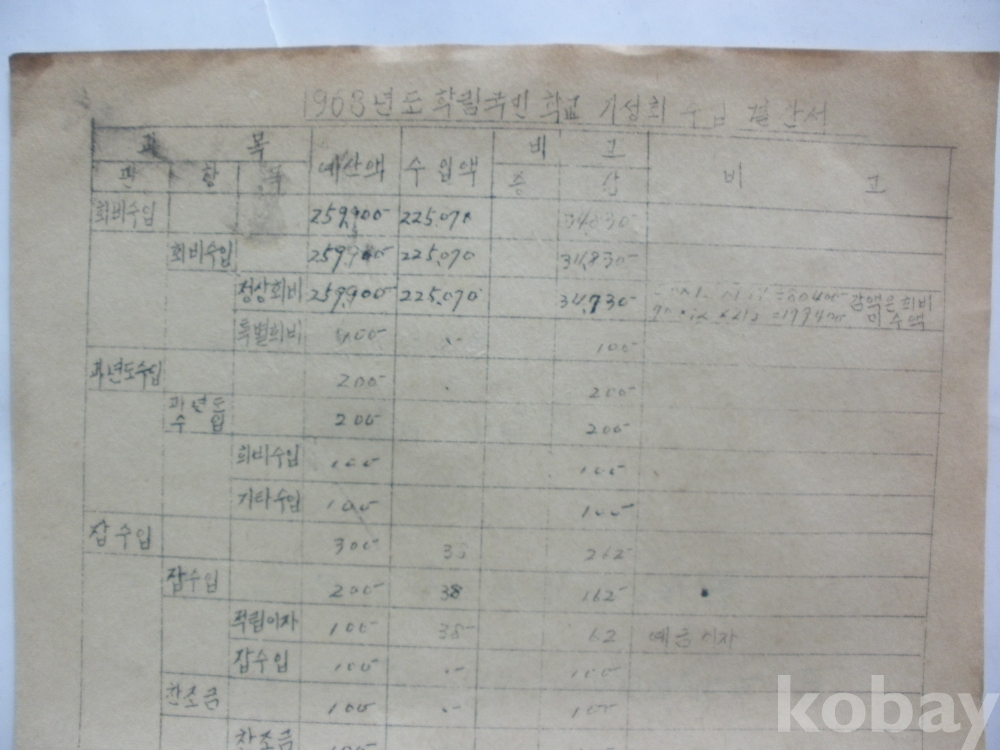 1963년도 학림국민학교 기성회 수입 결산서
과 목 예산액 수입액 비 고 비 고
관 항 목 증 감
회비수입 259,900 225.070 34830
회비수입 259,900 225.070 34.830
정상회비 259,900 225.070 34,730 감액은 회비
미수액
특별회비 100
과년도수입 200 200
과년도
수입 200 200
회비수입 100 100
기타수입 100 100
잡수입 300 38 262
잡수입 200 38 162
적립이자 100 38 62 예금이자
잡수입 100 100
찬조금 100 100
찬조금 100
kobay